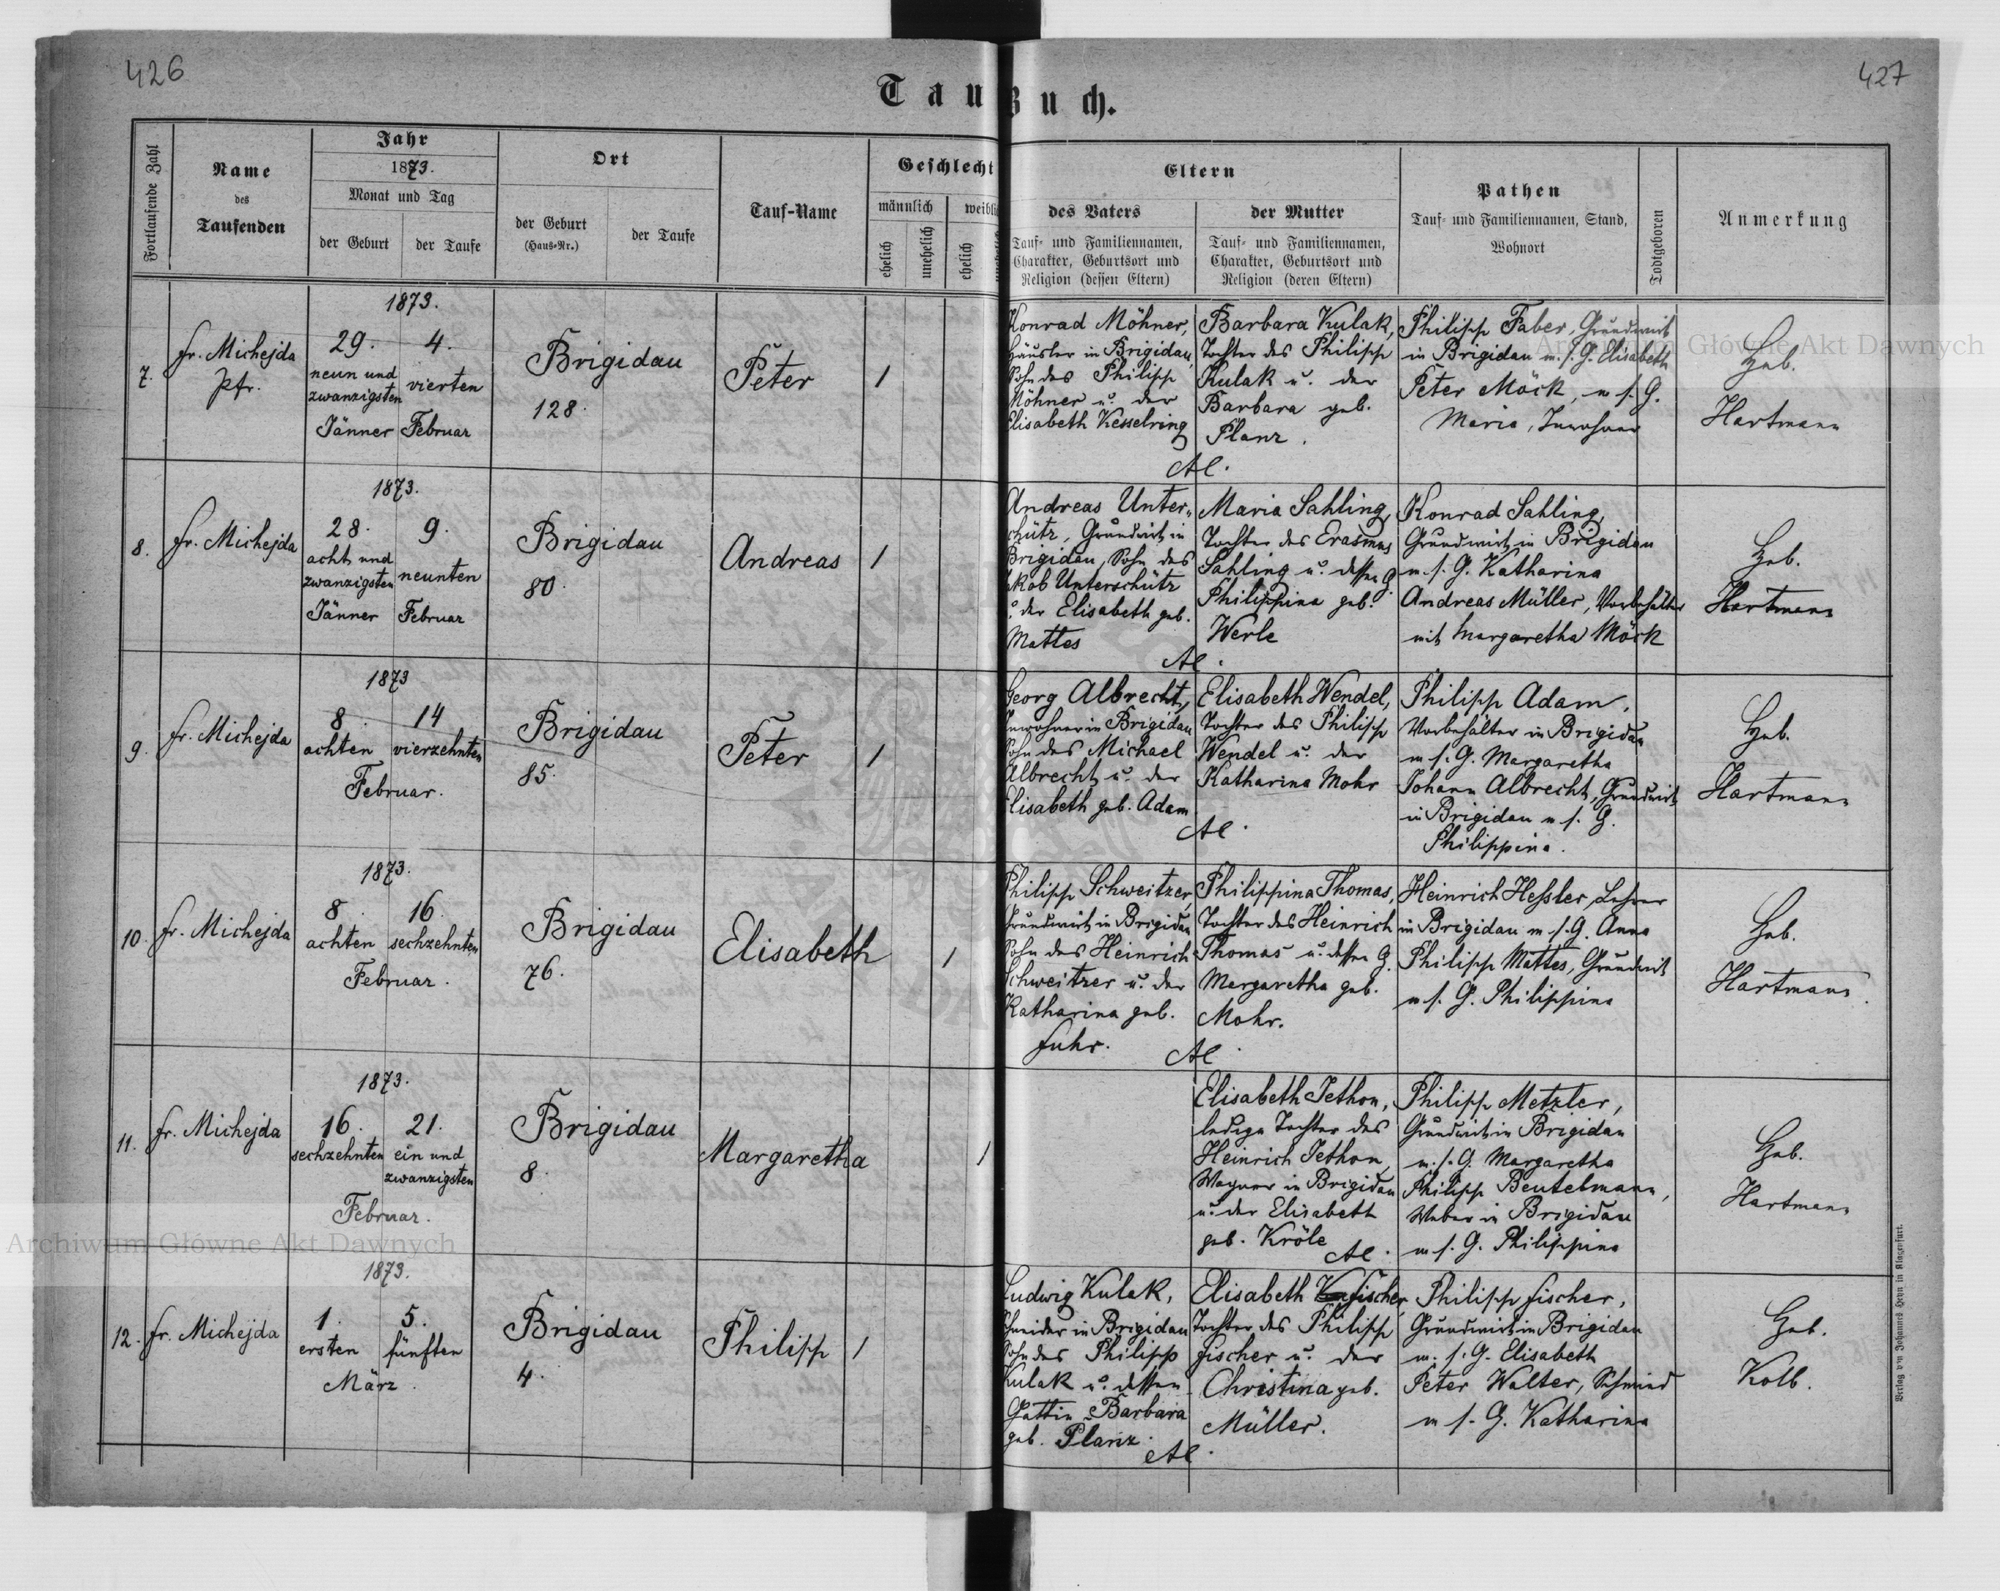 426
427
Taufbuch.
Fortlaufende Zahl
Name
des
Taufenden
Jahr
1873.
Monat und Tag
der Geburt
der Taufe
Ort
der Geburt
(Haus-Nr.)
der Taufe
Tauf-Name
Geschlecht
männlich
ehelich
unehelich
ehelich
Eltern
des Vaters
Tauf- und Familiennamen,
Charakter, Geburtsort und
Religion (dessen Eltern)
der Mutter
Tauf- und Familiennamen,
Charakter, Geburtsort und
Religion (deren Eltern)
Pathen
Tauf- und Familiennamen, Stand,
Wohnort
Todtgeboren
Anmerkung
7.
fr. Michejda
Pfr.
1873.
29.
neun und
zwanzigsten
Jänner
4.
vierten
Februar
Brigidau
128.
Peter
1
Konrad Möhner,
Häusler in Brigidau,
Sohn des Philipp
Möhner u. der
Elisabeth Kesselring
Barbara Kulak,
Tochter des Philipp
Kulak u. der
Barbara geb.
Planz.
AC.
Philipp Faber, Grundwirt
in Brigidau m. s. G. Elisabeth
Peter Möck, m s. G.
Maria, Inwohner
Heb.
Hartmann
8.
fr. Michejda
1873.
28.
acht und
zwanzigsten
Jänner
9.
neunten
Februar
Brigidau
80.
Andreas
1
Andreas Unter-
schütz, Grundwirt in
Brigidau, Sohn des
Jakob Unterschütz
u. der Elisabeth geb.
Mattes
Maria Sahling,
Tochter des Erasmus
Sahling u. dessen G.
Philippina geb.
Werle
AC.
Konrad Sahling,
Grundwirt in Brigidau
m. s. G. Katharina
Andreas Müller, Vorbehälter
mit Margaretha Möck
Heb.
Hartmann
9.
fr. Michejda
1873
8.
achten
14
vierzehnten
Februar.
Brigidau
85.
Peter
1
Georg Albrecht,
Inwohner in Brigidau
Sohn des Michael
Albrecht u. der
Elisabeth geb. Adam
Elisabeth Wendel,
Tochter des Philipp
Wendel u. der
Katharina Mohr
AC.
Philipp Adam,
Vorbehälter in Brigidau
m s. G. Margaretha
Johann Albrecht, Grundwirt
in Brigidau m s. G.
Philippina.
Heb.
Hartmann
10.
fr. Michejda
1873.
8.
achten
16.
sechzehnten
Februar.
Brigidau
76.
Elisabeth
1
Philipp Schweitzer,
Grundwirt in Brigidau
Sohn des Heinrich
Schweitzer u. der
Katharina geb.
Fuhr.
Philippina Thomas,
Tochter des Heinrich
Thomas u. dessen G.
Margaretha geb.
Mohr.
AC.
Heinrich Hessler, Lehrer
in Brigidau m s. G. Anna
Philipp Mattes, Grundwirt
m s. G. Philippina
Heb.
Hartmann.
11.
fr. Michejda
1873.
16.
sechzehnten
21.
ein und
zwanzigsten
Februar.
Brigidau
8.
Margaretha
1
Elisabeth Jethon,
ledige Tochter des
Heinrich Jethon,
Wagner in Brigidau
u. der Elisabeth
geb. Kröle
AC.
Philipp Metzler,
Grundwirt in Brigidau
m. s. G. Margaretha
Philipp Beutelmann,
Weber in Brigidau
m s. G. Philippina
Heb.
Hartmann
12.
fr. Michejda
1873.
1.
ersten
5.
fünften
März.
Brigidau
4.
Philipp
1
Ludwig Kulak,
Schneider in Brigidau
Sohn des Philipp
Kulak u. dessen
Gattin Barbara
geb. Planz.
Elisabeth Fischer,
Tochter des Philipp
Fischer u. der
Christina geb.
Müller.
AC.
Philipp Fischer,
Grundwirt in Brigidau
m. s. G. Elisabeth
Peter Walter, Schmied
m s. G. Katharina
Heb.
Kolb.
Verlag von Johannes Heyn in Klagenfurt.
Archiwum Główne Akt Dawnych
Archiwum Główne Akt Dawnych